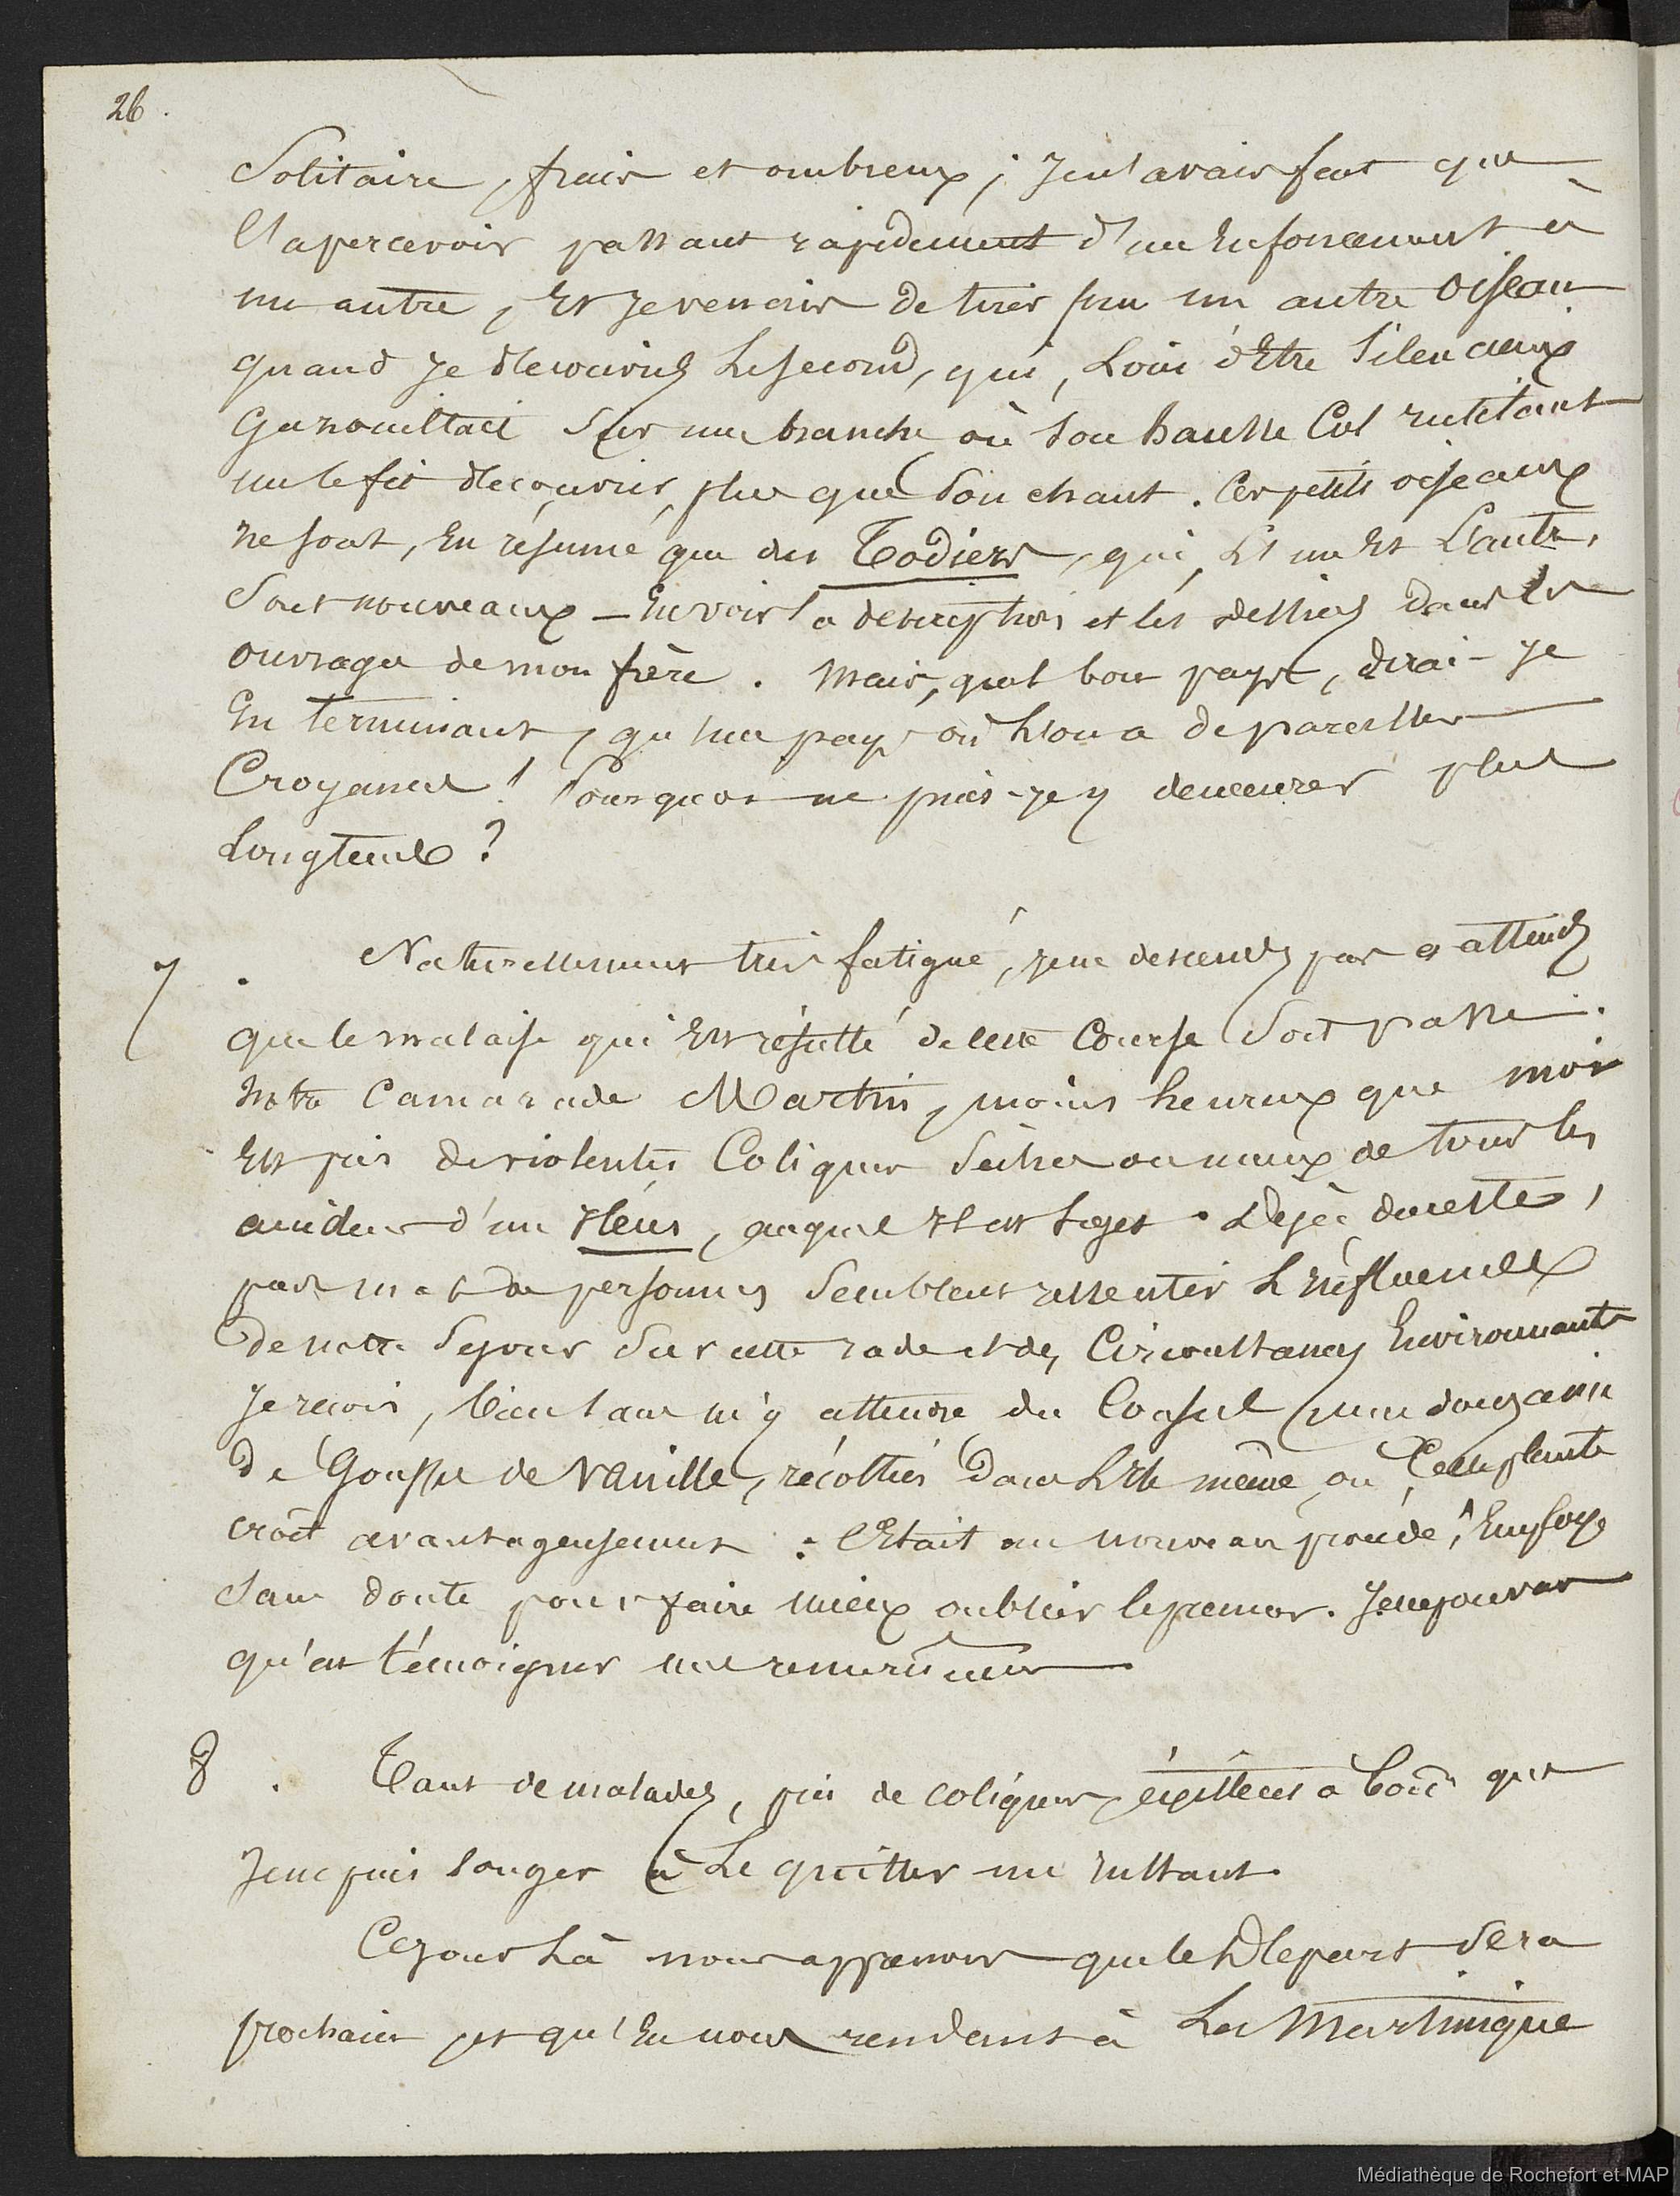 26.
Solitaire, frais et ombreux; Je n'avais fait que
l'apercevoir passant rapidement d'un Enfoncement à
un autre, Et Je venais de tirer sur un autre Oiseau
quand Je découvris Le second, qui, Loin d'Etre Silencieux
Gazouillait Sur une branche où Son hausse Col rutilant
me le fit découvrir, plus que Son chant. Ces petits oiseaux
ne sont, En résumé que des Todiers, qui, L'un Et L'autre,
Sont nouveaux – En voir la description et les dessins dans les
ouvrages de mon frère. Mais, quel bon pays, dirai-Je
En terminant, qu'un pays où L'on a de pareilles
Croyances! Pourquoi ne puis-Je y demeurer plus
Longtems?
7. Naturellement très fatigué, Je ne descends pas et attends
que le malaise qui Est résulté de cette Course Soit passé.
Notre Camarade Martin, moins heureux que moi
Est pris de violentes Coliques Sèches ou mieux de tous les
accidens d'un Iléus, auquel Il est Sujet. Déjà du reste,
pas mal de personnes Semblent ressentir L'Influence
de notre Séjour Sur cette rade et des Circonstances Environnantes
Je reçois, bien sans m'y attendre du Consul une douzaine
de Gousses de Vanille, récoltées dans L'Ile même où Cette plante
croît avantageusement : C'Etait un nouveau procédé, Employé
Sans doute pour faire mieux oublier le premier. Je ne pouvais
qu'en témoigner mes remerciemens
8. Tant de malades, pris de coliques, éxistent à bord que
Je ne puis Songer à Le quitter un Instant.
Ce Jour Là nous apprenons que le Départ Sera
prochain et qu'En nous rendant à La Martinique
Médiathèque de Rochefort et MAP